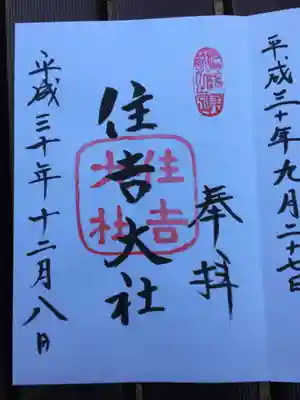 平成三十年九月二十七日
奉拝
住吉大社
住吉大社
平成三十年十二月八日